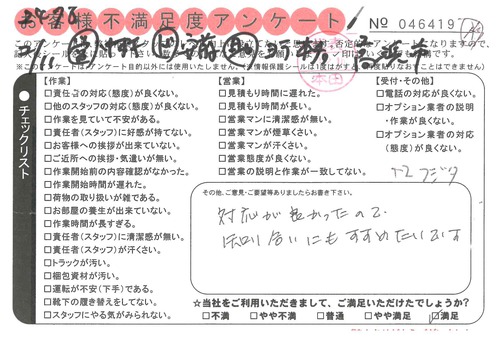 お客様不満足度アンケート
No 046419
チェックリスト
【作業】
□責任者の対応(態度)が良くない。
□他のスタッフの対応(態度)が良くない。
□作業を見ていて不安がある。
□責任者(スタッフ)に好感が持てない。
□お客様への挨拶が出来ていない。
□ご近所への挨拶・気遣いが無い。
□作業開始前の内容確認がなかった。
□作業開始時間が遅れた。
□荷物の取り扱いが雑である。
□お部屋の養生が出来ていない。
□作業時間が長すぎる。
□責任者(スタッフ)に清潔感が無い。
□責任者(スタッフ)が汗くさい。
□トラックが汚い。
□梱包資材が汚い。
□運転が不安(下手)である。
□靴下の履き替えをしてない。
□スタッフにやる気がみられない。
【営業】
□見積もり時間に遅れた。
□見積もり時間が長い。
□営業マンに清潔感が無い。
□営業マンが煙草くさい。
□営業マンが汗くさい。
□営業態度が良くない。
□営業の説明と作業が一致してない。
【受付・その他】
□電話の対応が良くない。
□オプション業者の説明・作業が良くない。
□オプション業者の対応(態度)が良くない。
フジタ
その他、ご意見・ご要望等ありましたらお書き下さい。
対応が良かったので
知り合いにもすすめたいです
☆当社をご利用いただきまして、ご満足いただけましたでしょうか?
□不満 □やや不満 □普通 □やや満足 ☑満足